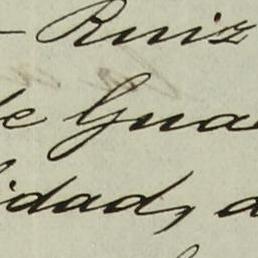 - Ruiz
de Gua
lidad, d